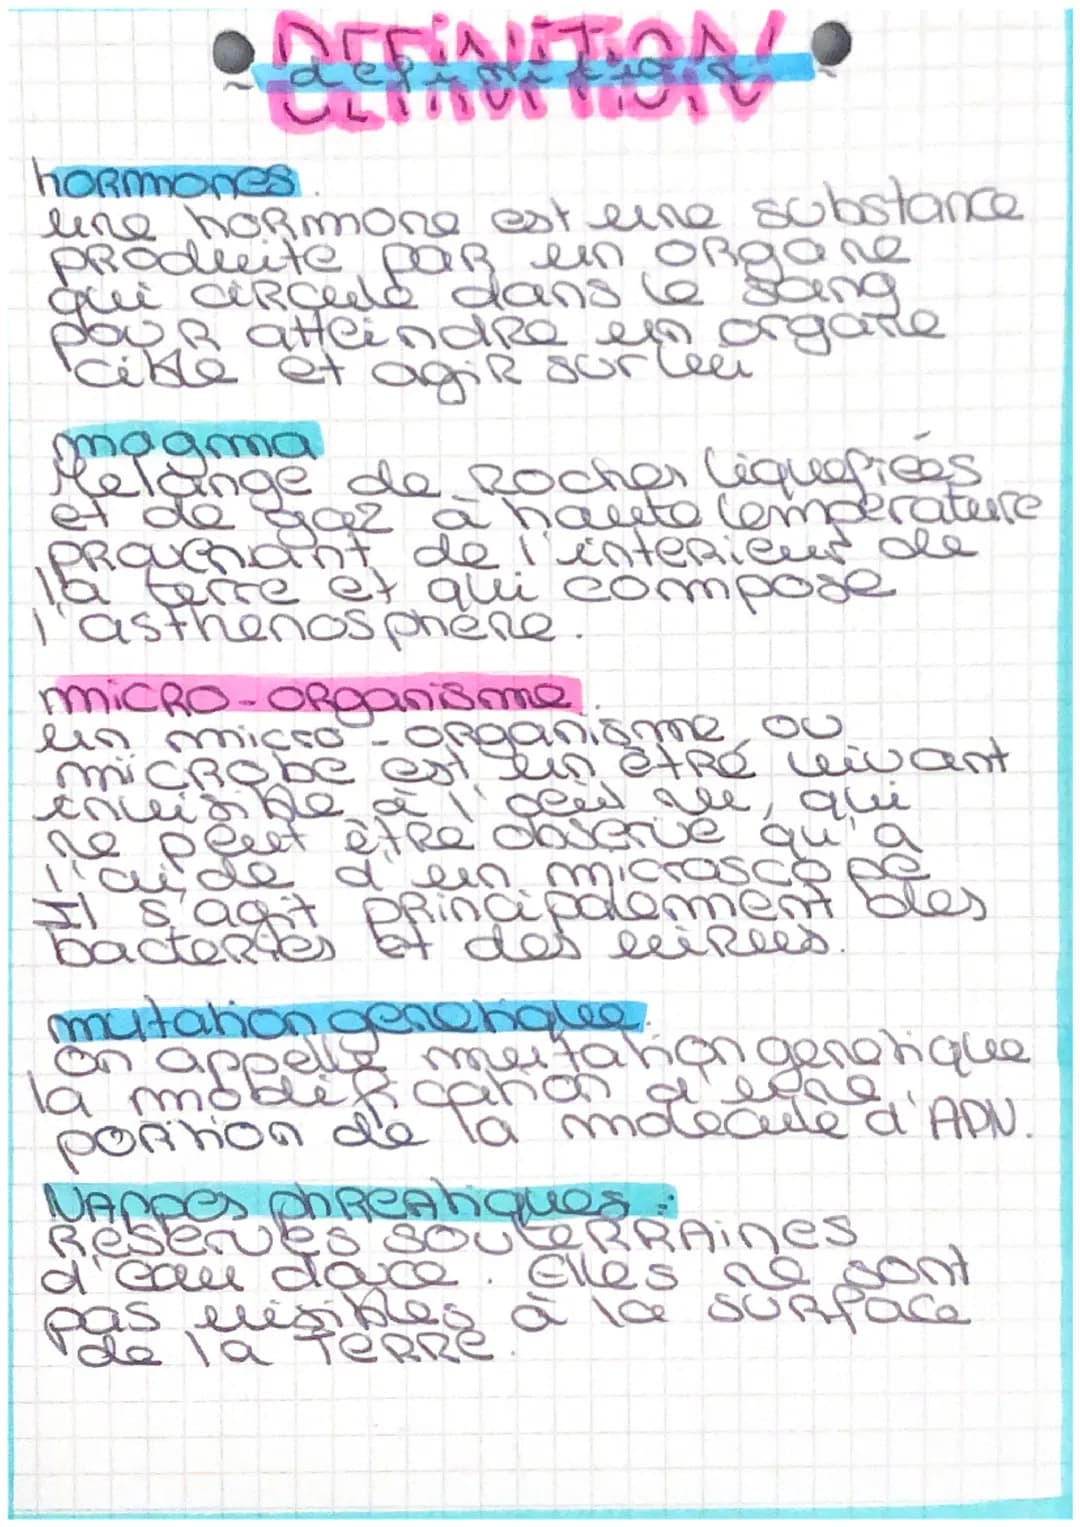 DEFINITION
definition
hormones.
une hormone est une substance
produite par un organe
qui circule dans le sang
pour atteindre un organe
cible et agir sur lui
magma
Melange de Roches liquefiées
et de gaz à haute temperature
provenant de l'interieur de
la terre et qui compose
l'asthenosphere.
micro-organisme.
un micro-organisme ou
microbe est un être vivant
invisible à l'oeil nu, qui
ne peut être observe qu'a
l'aide d'un microscope
Il s'agit principalement des
bacteries et des virus.
mutation genetique.
on appelle mutation genetique
la modification d'une
portion de la molecule d'ADN.
NAPPES phreatiques :
Reserves souterraines
d'eau douce. Elles ne sont
pas visibles à la surface
de la Terre.